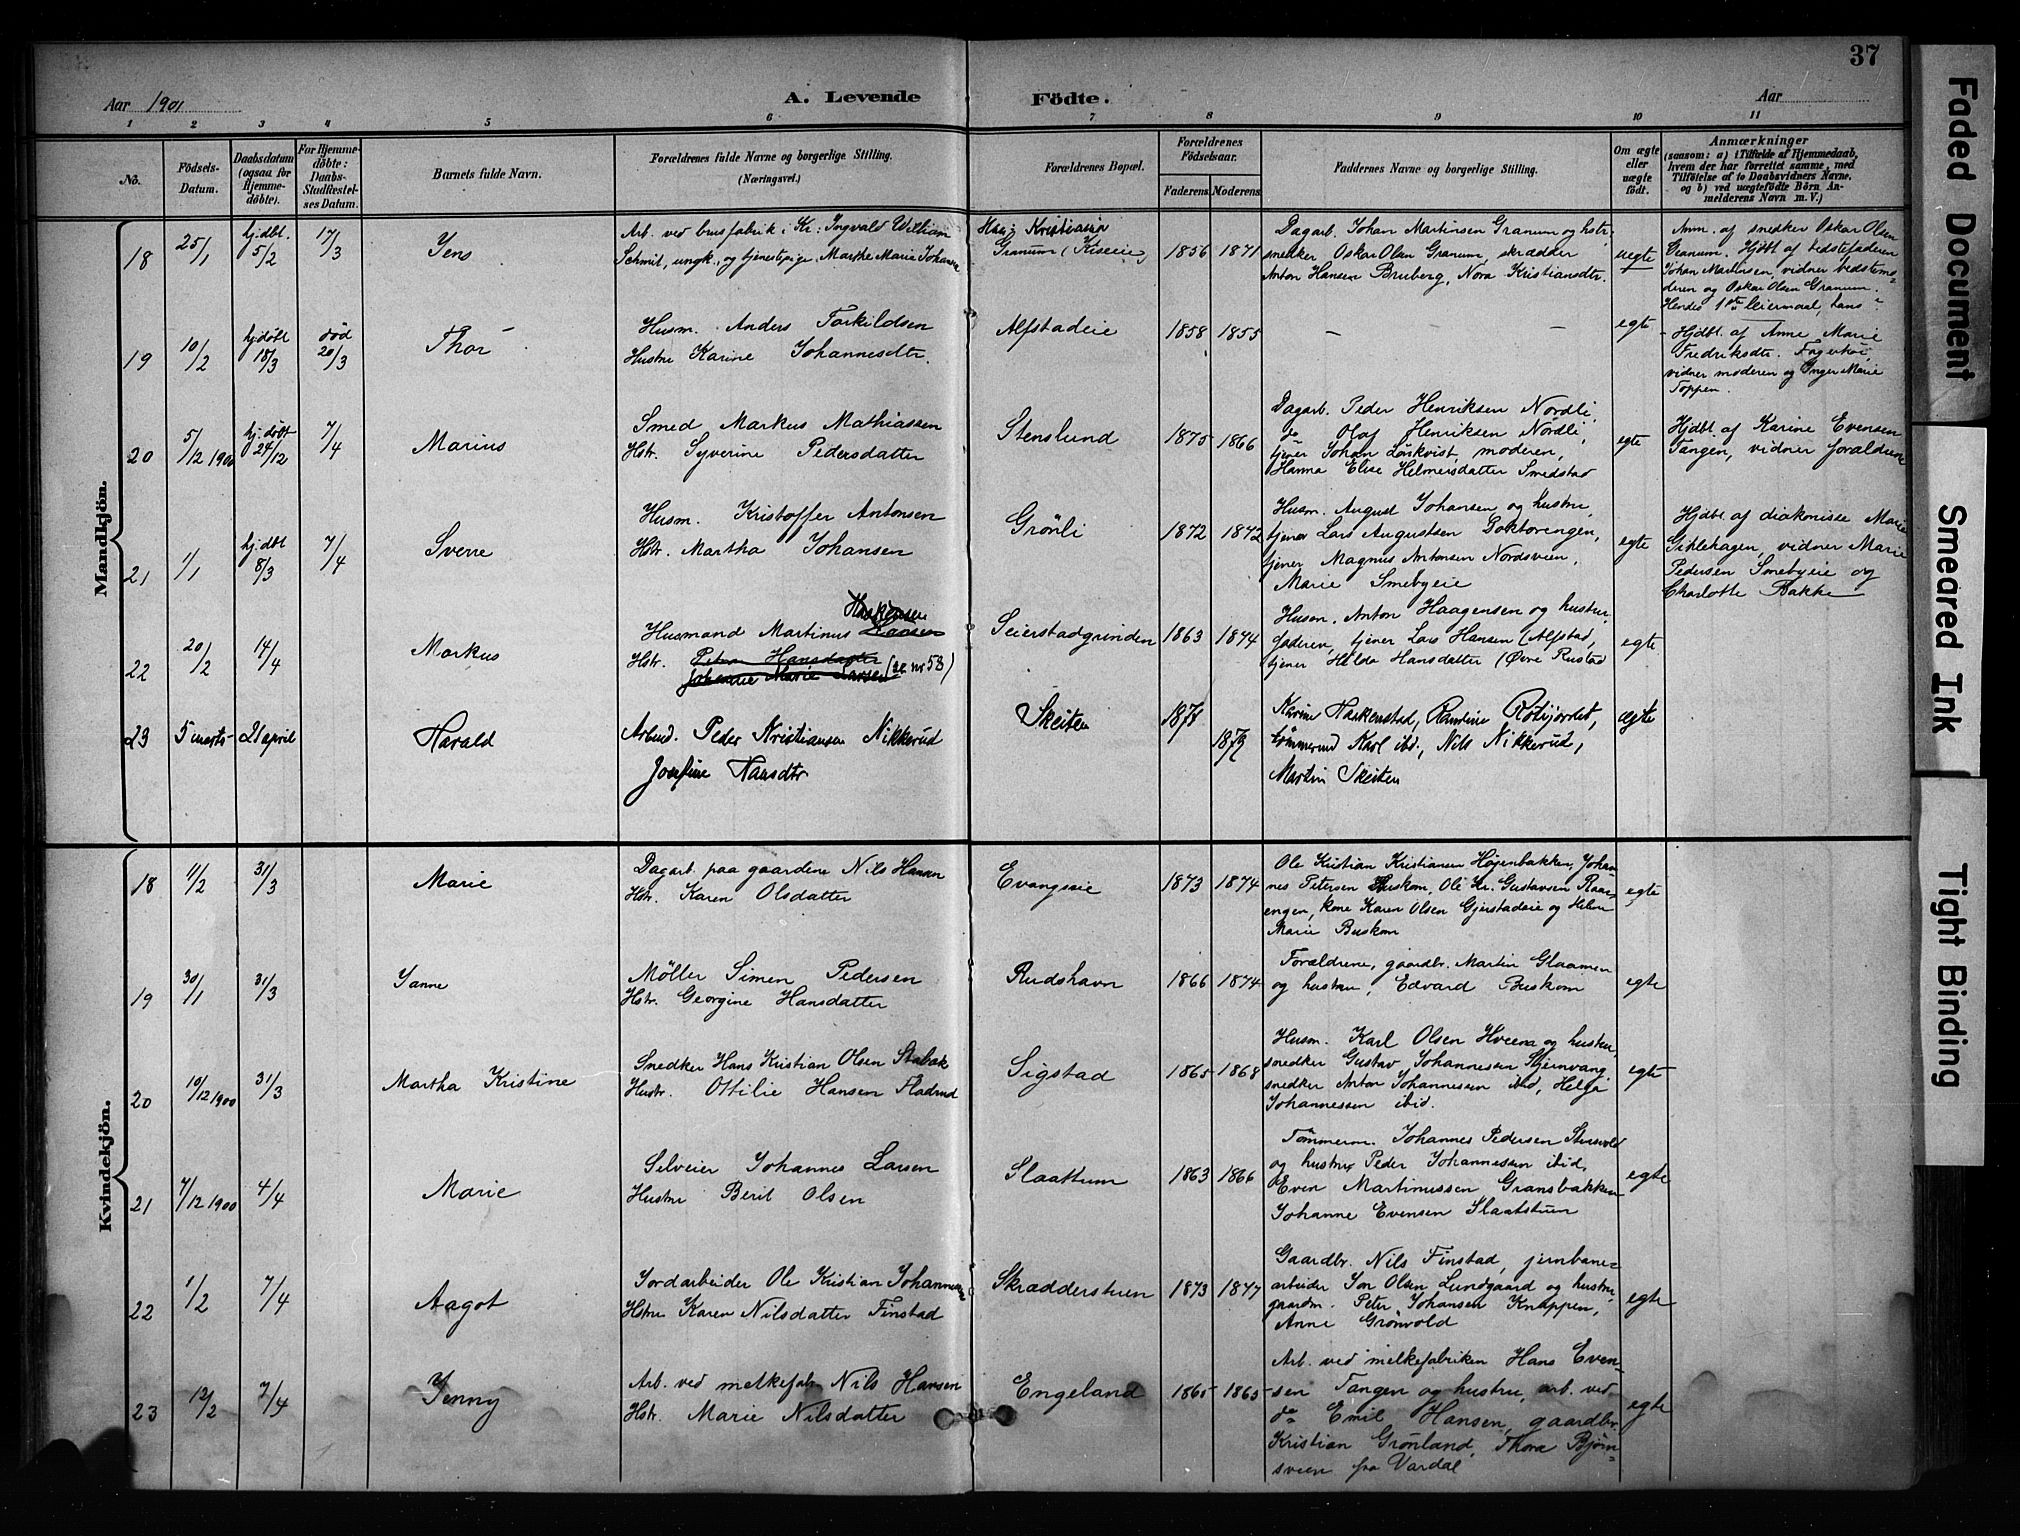 37
Aar 1901
A. Levende Födte.
Aar
1 2 3 4 5 6 7 8 9 10 11
No.
Födsels-Datum.
Daabsdatum (ogsaa for Hjemme-döbte).
For Hjemme-döbte: Daabs-Stadfæstel-ses Datum.
Barnets fulde Navn.
Forældrenes fulde Navne og borgerlige Stilling.
(Næringsvei.)
Forældrenes Bopæl.
Forældrenes Födselsaar.
Faderens. Moderens.
Faddernes Navne og borgerlige Stilling.
Om ægte eller uægte födt.
Anmærkninger
(saasom: a) i Tilfælde af Hjemmedaab,
hvem der har forrettet samme, med
Tilföielse af to Daabsvidners Navne.
og b) ved uægtefödte Börn An-
melderens Navn m. V.)
Mandkjön.
18 25/1 hj.dbt. 5/2 17/3 Jens
Arb. ved brusfabrik i Kr: Ingvald William
Schmit, ungk., og tjenestepige Marthe Marie Johansen
Kristiania
Granum (Kiseeie) 1856 1871
Dagarb. Johan Martinsen Granum og hstr.
snedker Oskar Olsen Granum, skrædder
Anton Hansen Bruberg, Nora Kristiansdtr.
uegte
Anm. af snedker Oskar Olsen
Granum. Hjdbt af bedstefaderen
Johan Martinsen, vidner bedstemo-
deren og Oskar Olsen Granum.
Hendes 1ste leiermaal, hans
19 10/2 hj.döbt 18/3 död 20/3 Thor
Husm. Anders Torkildsen
Hustru Karine Johannesdtr.
Alfstadeie 1858 1855 — — egte
Hjdbt. af Anne Marie
Fredriksdtr.
vidner moderen og Inger Marie
Toppen.
20 5/12 1900 hj.döbt 24/12 7/4 Marius
Smed Markus Mathiassen
Hstr. Syverine Pedersdatter
Stenslund 1875 1866
Dagarb. Peder Henriksen Nordli,
do Olaf Henriksen Nordli,
tjener Johan Lörkvist, moderen,
Hanna Elise Helmersdatter Smedstad
egte
Hjdbt. af Karine Evensen
Tangen, vidner forældrene
21 1/1 hj.dbt 8/3 7/4 Sverre
Husm. Kristoffer Antonsen
Hstr. Martha Johansen
Grönli 1872 1872
Husm. August Johansen og hustru,
tjener Lars Augustsen Doktorengen,
tjener Magnus Antonsen Nordsveen,
Marie Smebyeie
egte
Hjdbt. af diakonisse Marie
Giklehagen, vidner Marie
Pedersen Smebyeie og
Charlotte Bakke
22 20/2 14/4 Markus
Husmand Martinus
Hstr. Petra Hansdatter
Johanne Marie Larsen (se nr 58)
Seierstadgrinden 1863 1874
Husm. Anton Haagensen og hustru
faderen, tjener Lars Hansen (Alfstad,
tjener Hilda Hansdatter (Övre Rustad
egte
23 5 marts 21 april Harald
Arbmd. Peder Kristiansen Nikkerud
Josefine Hansdtr
Skeiten
Karine Haskenstad, Ramtine Rötijordet,
tömmermd Karl ibd., Nils Nikkerud,
Martin Skeiten
ægte
Kvindekjön.
18 11/2 31/3 Marie
Dagarb. paa gaardene Nils Hansen
Hstr. Karen Olsdatter
Evangseie 1873 1874
Ole Kristian Kristiansen Højenbakken, Johan-
nes Petersen Buskom, Ole Kr. Gustavsen Raar-
engen, kone Karen Olsen Gjerstadeie og Helene
Marie Buskom
egte
19 30/1 31/3 Janne
Møller Simen Pedersen
Hstr. Georgine Hansdatter
Rudshavn 1866 1874
Forældrene, gaardbr. Martin Glaamen
og hustru, Edvard Buskom
egte
20 19/12 1900 31/3 Martha Kristine
Snedker Hans Kristian Olsen Stabæk
Hustr. Ottilie Hansen Fladrud
Sigstad 1865 1868
Husm. Karl Olsen Hveem og hustru,
snedker Gustav Johannesen Stjernvang
snedker Anton Johannessen ibid, Helga
Johannessen ibid.
egte
21 7/12 1900 4/4 Marie
Selveier Johannes Larsen
Hustru Berit Olsen
Slaattum 1863 1866
Tömmerm. Johannes Pedersen Stensvold
og hustru, Peder Johannesen ibid.
Even Martinussen Gransbakken
Johanne Evensen Slaatstuen
egte
22 1/2 7/4 Aagot
Jordarbeider Ole Kristian Johannesen
Hstru Karen Nilsdatter Finstad
Skrædderstuen 1873 1877
Gaardbr. Nils Finstad, jernbane-
arbeider Jon Olsen Lundgaard og hustru,
gaardm. Peter Johansen Knappen,
Anne Grönvold
egte
23 12/2 7/4 Jenny
Arb. ved melkefabr. Nils Hansen
Hstr. Marie Nilsdatter
Engeland 1865 1865
Arb. ved melkefabriken Hans Even-
sen Tangen og hustru, arb. ved
do Emil Hansen, gaardbr.
Kristian Grönland, Thora Bjørn-
sveen fra Vardal
egte
Faded Document
Smeared Ink
Tight Binding